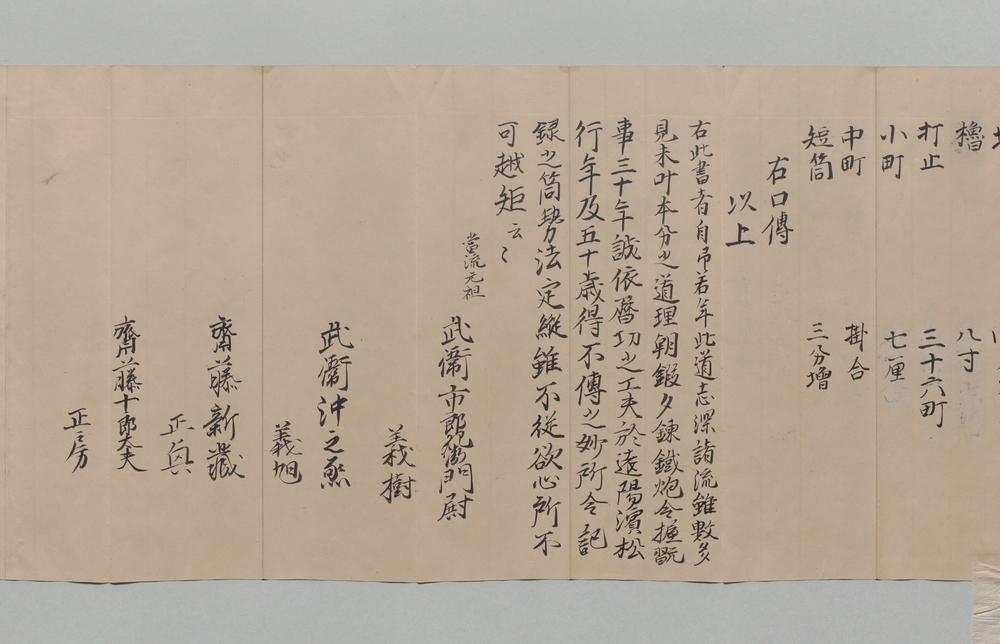 櫓 八寸
打止 三十六町
小町 七厘
中町 掛合
短筒 三分増
右口傳
以上
右此書者自弱若年此道志深諸流雖數多
見未叶本分之道理朝鍛夕錬鐵炮令握翫
事三十年誠依暦功之工夫於遠陽濱松
行年及五十歳得不傳之妙所令記
録之筒勢法定縱雖不従欲心所不
可越矩云々
當流元祖
武衞市郎左衞門尉
義樹
武衞沖之亟
義旭
齋藤新藏
正真
齋藤十郎太夫
正房